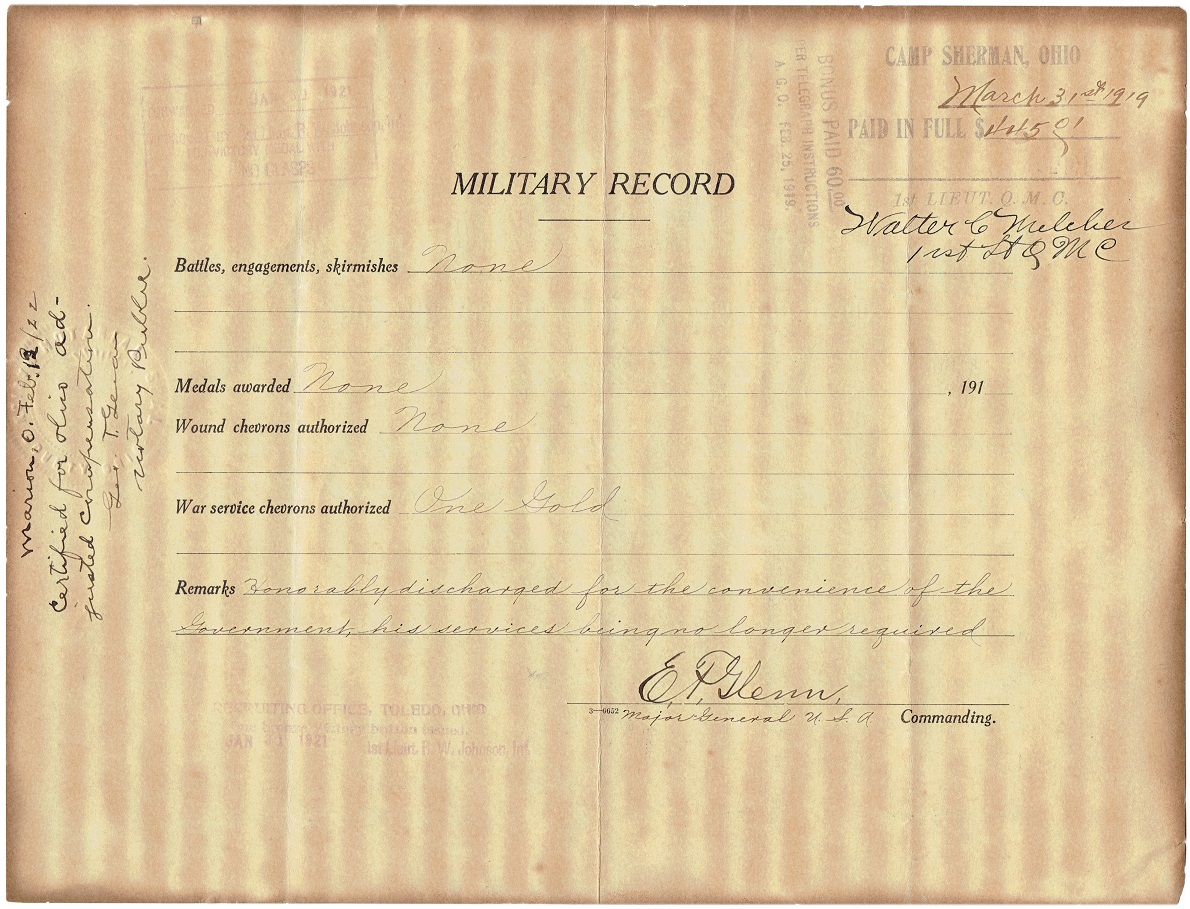 CAMP SHERMAN, OHIO
March 31st 1919
PAID IN FULL $
1st LIEUT. Q. M. C.
Walter C Melcher
1rst Lt Q M C
BONUS PAID 60.00
PER TELEGRAPH INSTRUCTIONS
A. G. O. FEB. 25, 1919.
JAN 1921
VICTORY MEDAL
NO CLASPS
MILITARY RECORD
Battles, engagements, skirmishes None
Medals awarded None , 191
Wound chevrons authorized None
War service chevrons authorized One Gold
Remarks Honorably discharged for the convenience of the
Government, his services being no longer required
E. F. Glenn,
3—6652 Major General U. S. A Commanding.
RECRUITING OFFICE, TOLEDO, OHIO
Bronze Victory button issued.
JAN 31 1921 1st Lieut. R. W. Johnson, Inf.
Marion, O. Feb. /22
Certified for Ohio ad-
justed compensation.
Geo. T. Geran
Notary Public.